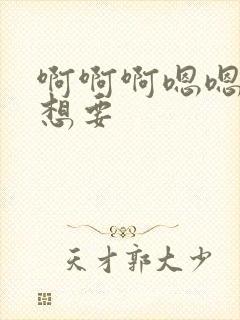 啊啊啊嗯嗯
想要
天才郭大少